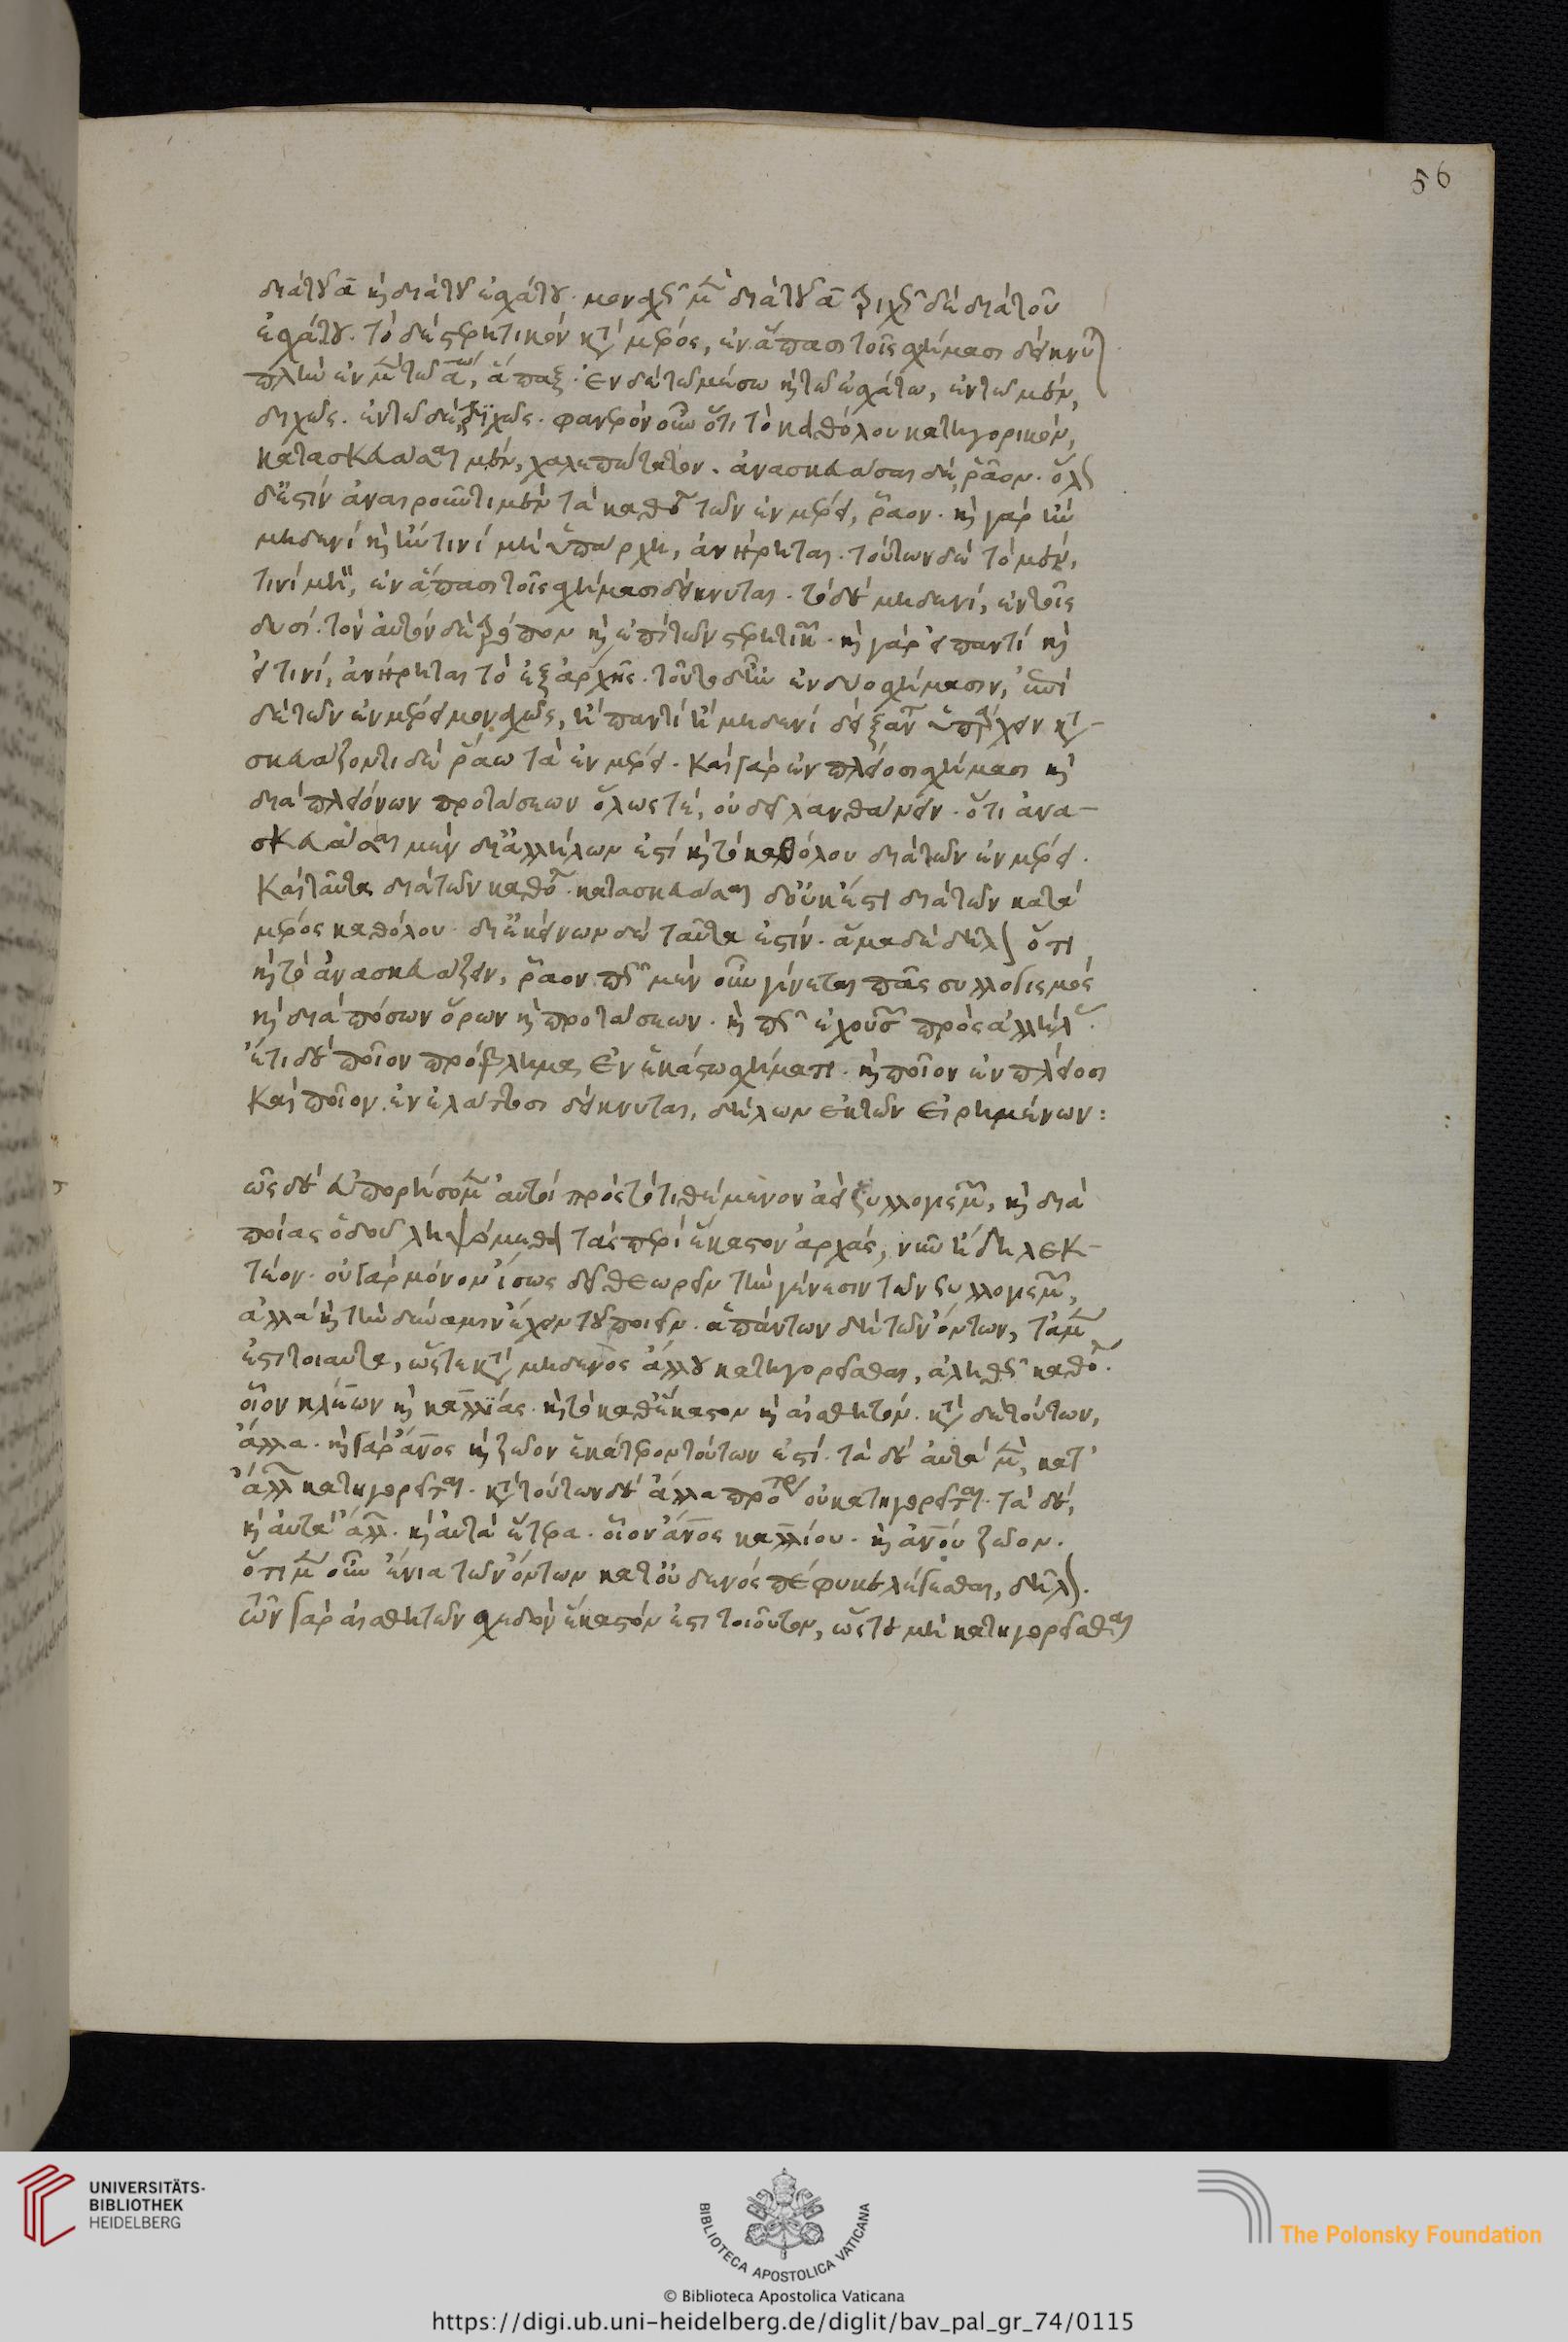 διὰ τοῦ α̅ καὶ διὰ τοῦ ἐσχάτου. μοναχῶς μὲν διὰ τοῦ α̅ τριχῶς δὲ διὰ τοῦ
ἐσχάτου. τὸ δὲ στερητικὸν κατὰ μέρος, ἐν ἅπασι τοῖς σχήμασι δείκνυται
πλὴν ἐν μὲν τῶ α̅ω, ἅπαξ. Ἐν δὲ τῶ μέσω καὶ τῶ ἐσχάτω, ἐν τῶ μὲν,
διχῶς. ἐν τῶ δὲ, τριχῶς. φανερὸν οὖν ὅτι τὸ καθόλου κατηγορικὸν,
κατασκευάσαι μὲν, χαλεπώτατον. ἀνασκευάσαι δὲ, ῥᾶον. ὅλως
δ' ἐστὶν ἀναιροῦντι μὲν τὰ καθόλου τῶν ἐν μέρει, ῥᾶον. καὶ γὰρ ἢν
μηδενὶ καὶ ἢν τινὶ μὴ ὑπάρχη, ἀνήρηται. τούτων δὲ τὸ μὲν,
τινὶ μὴ, ἐν ἅπασι τοῖς σχήμασι δείκνυται. τὸ δὲ μηδενὶ, ἐν τοῖς
δυσί. τὸν αὐτὸν δὲ τρόπον καὶ ἐπὶ τῶν στερητικῶν. καὶ γὰρ εἰ παντὶ καὶ
εἰ τινὶ, ἀνήρηται τὸ ἐξ ἀρχῆς. τοῦτο δ' ἦν ἐν δυο σχήμασιν, ἐπὶ
δὲ τῶν ἐν μέρει μοναχῶς, ἢ παντὶ ἢ μηδενὶ δεῖξαι ὑπάρχειν κατα-
σκευάζοντι δὲ ῥάω τὰ ἐν μέρει. Καὶ γὰρ ἐν πλείοσι σχήμασι καὶ
διὰ πλειόνων προτάσεων ὅλως τὲ, οὐ δεῖ λανθάνειν. ὅτι ἀνα-
σκευάσαι μὲν δι' ἀλλήλων ἐστὶ καὶ τὸ καθόλου διὰ τῶν ἐν μέρει.
Καὶ ταῦτα διὰ τῶν καθόλου. κατασκευάσαι δ' οὐκ ἔστι διὰ τῶν κατὰ
μέρος καθόλου. δι' ἐκείνων δὲ ταῦτα ἐστίν. ἅμα δὲ δῆλον ὅτι
καὶ τὸ ἀνασκευάζειν, ῥᾶον. πῶς μὲν οὖν γίνεται πᾶς συλλογισμὸς
καὶ διὰ πόσων ὅρων καὶ προτάσεων. καὶ πῶς ἐχουσῶν πρὸς ἀλλήλας.
ἔτι δὲ ποῖον πρόβλημα, Ἐν ἑκάστω σχήματι. καὶ ποῖον ἐν πλείοσι
Καὶ ποῖον ἐν ἐλάττοσι δείκνυται, δῆλον ἐκ τῶν εἰρημένων:
ὣς δ' εὐπορήσομεν αὐτοὶ πρὸς τὸ τιθέμενον ἀεὶ συλλογισμῶν, καὶ διὰ
ποίας ὁδοῦ ληψόμεθα τὰς περὶ ἕκαστον ἀρχὰς, νῦν ἤδη λεκ-
τέον. οὐ γὰρ μόνον ἴσως δεῖ θεωρεῖν τὴν γένεσιν τῶν συλλογισμῶν,
ἀλλὰ καὶ τὴν δύναμιν ἔχειν τοῦ ποιεῖν. ἁπάντων δὴ τῶν ὄντων, τὰ μὲν
ἐστι τοιαῦτα, ὥστε κατὰ μηδενὸς ἄλλου κατηγορεῖσθαι, ἀληθῶς καθόλου.
οἷον κλέων καὶ καλλίας. καὶ τὸ καθ' ἕκαστον καὶ αἰσθητόν. κατὰ δὲ τούτων,
ἄλλα. καὶ γὰρ ἄνος καὶ ζῶον ἑκάτερον τούτων ἐστί. τὰ δ' αὐτὰ μὲν, κατ'
ἄλλων κατηγορεῖται. κατὰ τούτων δὲ ἄλλα πρότερον οὐ κατηγορεῖται. τὰ δὲ,
καὶ αὐτὰ ἄλλων. καὶ αὐτὰ ἕτερα. οἷον ἄνος καλλίου. καὶ ἀνου ζῶον.
ὅτι μὲν οὖν ἔνια τῶν ὄντων κατ' οὐδενὸς πέφυκε λέγεσθαι, δῆλον.
τῶν γὰρ αἰσθητῶν σχεδὸν ἕκαστόν ἐστι τοιοῦτον, ὥστε μὴ κατηγορεῖσθαι
56
UNIVERSITÄTS-
BIBLIOTHEK
HEIDELBERG
BIBLIOTECA APOSTOLICA VATICANA
The Polonsky Foundation
© Biblioteca Apostolica Vaticana
https://digi.ub.uni-heidelberg.de/diglit/bav_pal_gr_74/0115